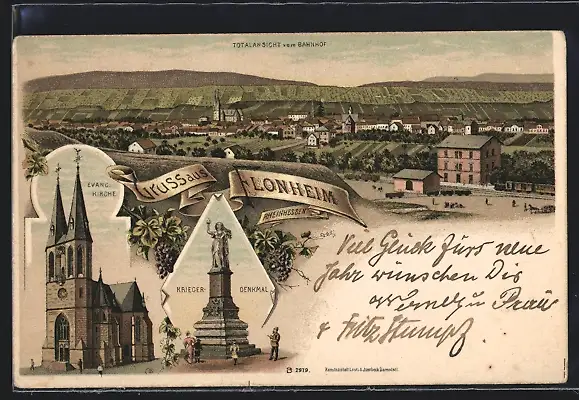 TOTALANSICHT vom BAHNHOF
EVANG.
KIRCHE
Gruss aus
FLONHEIM
RHEINHESSEN
KRIEGER- DENKMAL
Viel Glück fürs neue
Jahr wünschen Dis
Frau
& Fritz Stumpf
B 2919.